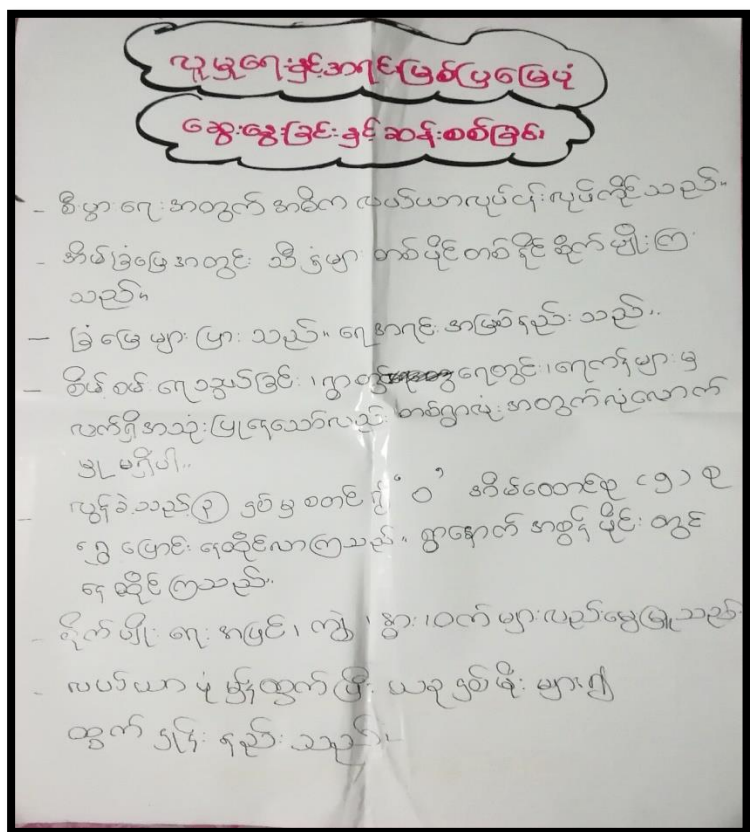 လူမှုရေးနှင့်အရင်းမြစ်ပြမြေပုံ
ဆွေးနွေးခြင်းနှင့်ဆန်းစစ်ခြင်း
- စီးပွားရေးအတွက် အဓိက လယ်ယာလုပ်ငန်းလုပ်ကိုင်သည်။
- အိမ်ခြံမြေအတွင်း သီးနှံများ တစ်ပိုင်တစ်နိုင်စိုက်ပျိုးကြ
သည်။
- ခြံမြေများပြားသည်။ ရေအရင်းအမြစ်နည်းသည်။
- စိမ့်စမ်းရေသွယ်ခြင်း၊ ရွာတွင် ရေတွင်း၊ ရေကန်များမှ
လက်ရှိအသုံးပြုနေသော်လည်း တစ်ရွာလုံးအတွက်လုံလောက်
မှုမရှိပါ။
- လွန်ခဲ့သည့် (၃) နှစ်မှစတင်၍ "ဝ" အိမ်ထောင်စု (၅) စု
ရွှေ့ပြောင်းနေထိုင်လာကြသည်။ ရွာနောက် အစွန်ပိုင်းတွင်
နေထိုင်ကြသည်။
- စိုက်ပျိုးရေးအပြင်၊ ကျွဲ၊ နွား၊ ဝက်များလည်းမွေးမြူသည်
- လယ်ယာပုံမှန်ထွက်ပြီး ယခုနှစ်မိုးများ၍
ထွက်နှုန်းနည်းသည်။